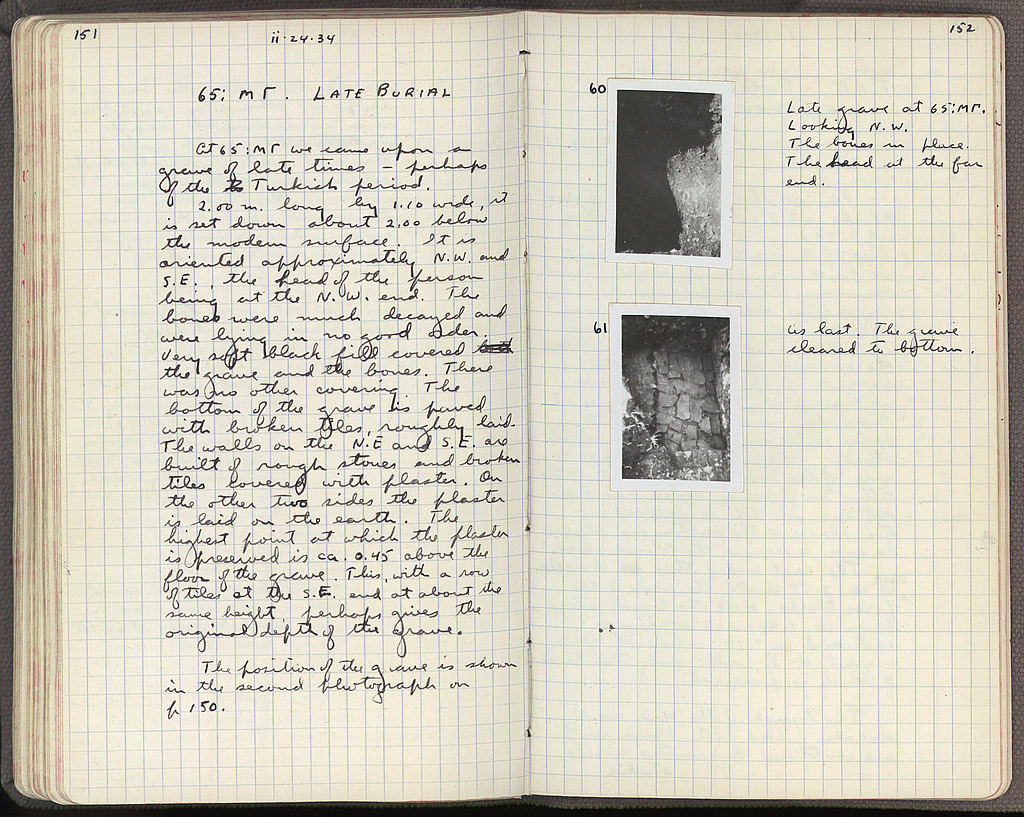 151
ii·24·34
65: ΜΓ. LATE BURIAL
At 65:ΜΓ we came upon a
grave of late times – perhaps
of the Turkish period.
2.00 m. long by 1.10 wide, it
is set down about 2.00 below
the modern surface. It is
oriented approximately N.W. and
S.E., the head of the person
being at the N.W. end. The
bones were much decayed and
were lying in no good order.
Very soft black fill covered both
the grave and the bones. There
was no other covering. The
bottom of the grave is paved
with broken tiles, roughly laid.
The walls on the N.E and S.E. are
built of rough stones and broken
tiles covered with plaster. On
the other two sides the plaster
is laid on the earth. The
highest point at which the plaster
is preserved is ca. 0.45 above the
floor of the grave. This, with a row
of tiles at the S.E. end at about the
same height, perhaps gives the
original depth of the grave.
The position of the grave is shown
in the second photograph on
p 150.
152
60
Late grave at 65:ΜΓ.
Looking N.W.
The bones in place.
The head at the far
end.
61
As last. The grave
cleared to bottom.